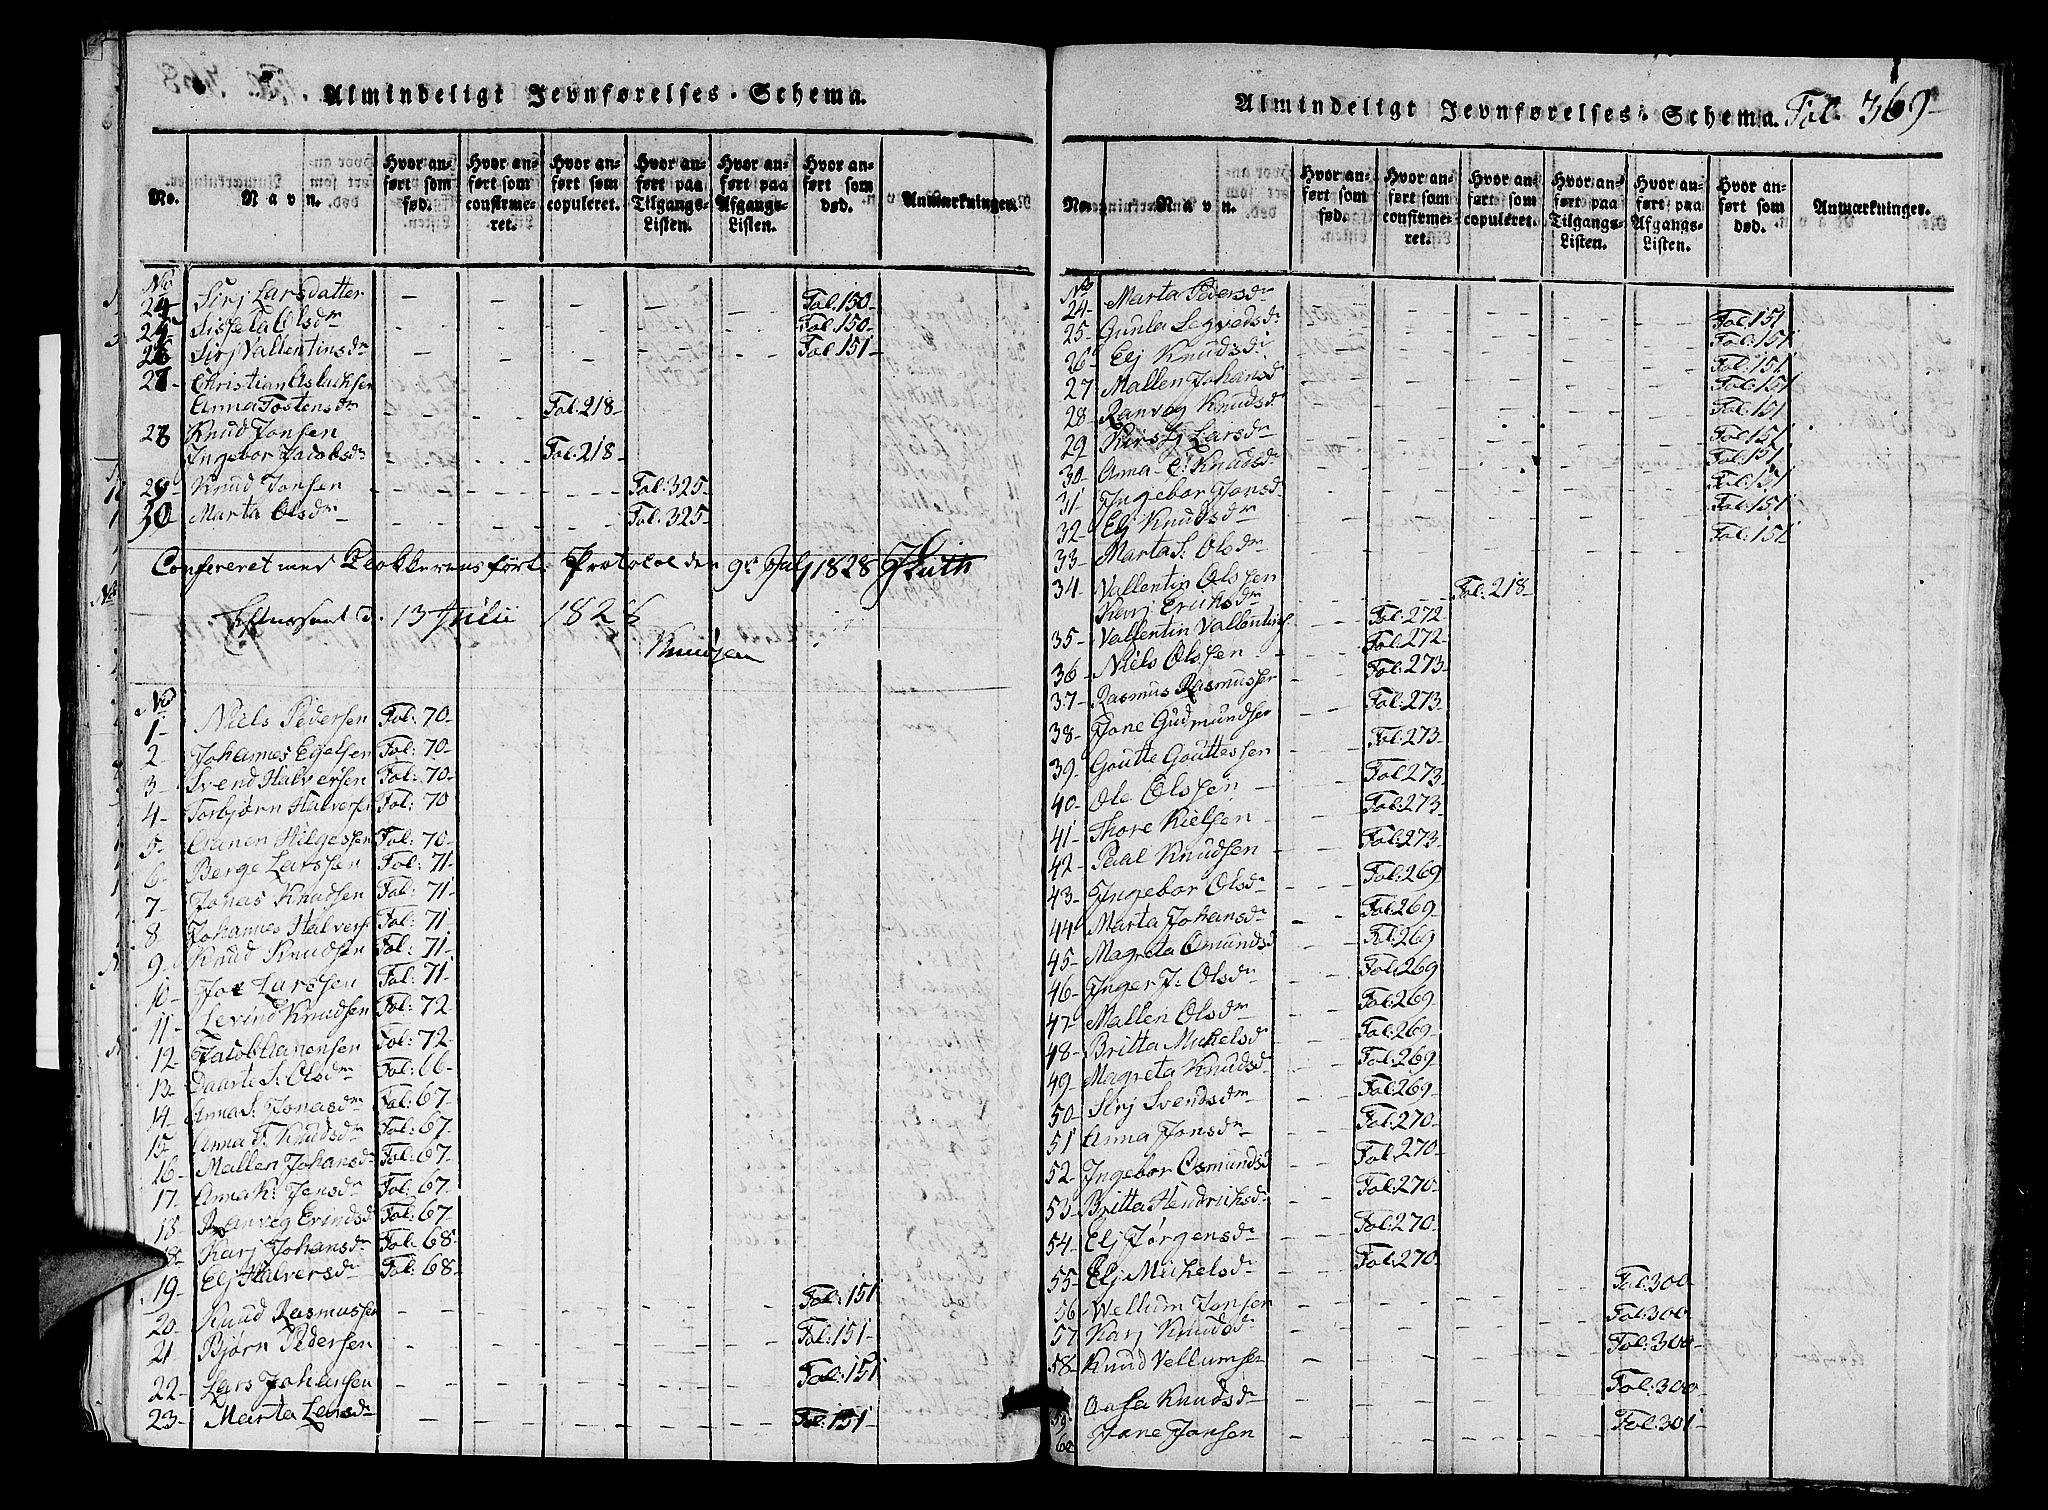 Almindeligt Jevnførelses-Schema.
No. Navn. Hvor anført som fød. Hvor anført som confirmeret. Hvor anført som copuleret. Hvor anført paa Tilgangs-Listen. Hvor anført paa Afgangs-Listen. Hvor anført som død. Anmærkninger.
No
24 Sirj Larsdatter Fol. 150
25 Sissela Olsdr Fol: 150
26 Sirj Vallentinsdr Fol 151
27 Christian Aslachsen
Anna Tostensdr Fol: 218
28 Knud Jonsen
Ingebor Jacobsdr Fol: 218
29 Knud Jonsen Fol: 325
30 Marta Olsdr Fol: 325
Confereret med Klokkerens førte Protocol den 9de July 1828
Efterseet d. 13 Julii 1828
Knudsen
No
1 Niels Pedersen Fol: 70
2 Johannes Egelsen Fol: 70
3 Svend Halversen Fol: 70
4 Torbjørn Halvers Fol: 70
5 Aanen Hilgessen Fol: 70
6 Berge Larssen Fol: 71
7 Jonas Knudsen Fol: 71
8 Johannes Halvers Fol: 71
9 Knud Knudsen Fol: 71
10 Joe Larssen Fol: 71
11 Levind Knudsen Fol: 72
12 Jacob Aanensen Fol: 72
13 Daarte S: Olsdr Fol: 66
14 Anna S. Jonasdr Fol: 67
15 Anna T. Knudsdr Fol: 67
16 Mallen Johansdr Fol: 67
17 Anna K: Jensdr Fol: 67
18 Ranveg Erindsd Fol: 67
18 Karj Johansdr Fol: 68
19 Elj Halversdr Fol: 68
20 Knud Rasmussen Fol: 151
21 Bjørn Pedersen Fol: 151
22 Lars Johansen Fol: 151
23 Marta Larsdr Fol: 151
Almindeligt Jevnførelses-Schema. Fol. 369
No. Navn. Hvor anført som fød. Hvor anført som confirmeret. Hvor anført som copuleret. Hvor anført paa Tilgangs-Listen. Hvor anført paa Afgangs-Listen. Hvor anført som død. Anmærkninger.
No
24 Marta Pedersdr Fol: 151
25 Gunla Segvedsdr Fol: 151
26 Elj Knudsdr Fol: 151
27 Mallen Johansd Fol: 151
28 Ranveg Knudsd Fol: 151
29 Kirstj Larsdr Fol: 151
30 Anna E: Knudsdr Fol. 151
31 Ingebor Jonsd Fol: 151
32 Elj Knudsdr Fol: 151
33 Marta S. Olsdr Fol: 151
34 Vallentin Olssen
Karj Eriksdr Fol: 218
35 Vallentin Vallentins Fol: 272
36 Niels Olssen Fol: 272
37 Rasmus Rasmussen Fol: 273
38 Jone Gudmundsen Fol: 273
39 Goutte Gouttessen Fol: 273
40 Ole Olssen Fol: 273
41 Thore Kielsen Fol: 273
42 Paal Knudsen Fol: 273
43 Ingebor Olsdr Fol: 269
44 Marta Johansdr Fol: 269
45 Magreta Omundsd Fol: 269
46 Inger J: Olsdr Fol: 269
47 Mallen Olsdr Fol: 269
48 Britta Mickelsd Fol: 269
49 Magreta Knudsd Fol: 269
50 Sirj Svendsdr Fol: 269
51 Anna Jonsdr Fol: 270
52 Ingebor Osmundsd Fol: 270
53 Britta Hendriksdr Fol: 270
54 Elj Jørgensdr Fol: 270
55 Elj Mickelsdr Fol: 270
56 Wellum Jonsen Fol: 300
57 Karj Knudsd Fol: 300
58 Knud Vellumsen Fol: 300
59 Aasa Knudsdr Fol: 300
60 Jone Jonsen Fol: 301